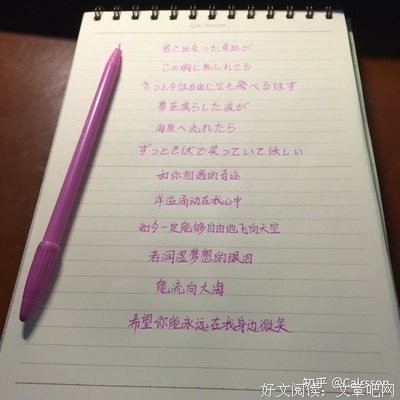 君と出会った奇跡が
この胸にあふれてる
きっと今は自由に空も飛べるはず
夢を濡らした涙が
海原へ流れたら
ずっとそばで笑っていてほしい
如你相遇的奇迹
洋溢涌动在我心中
如今一定能够自由地飞向天空
若润湿梦想的眼泪
能流向大海
希望你能永远在我身边微笑
知乎 @Calrsson
好文阅读：文章吧网